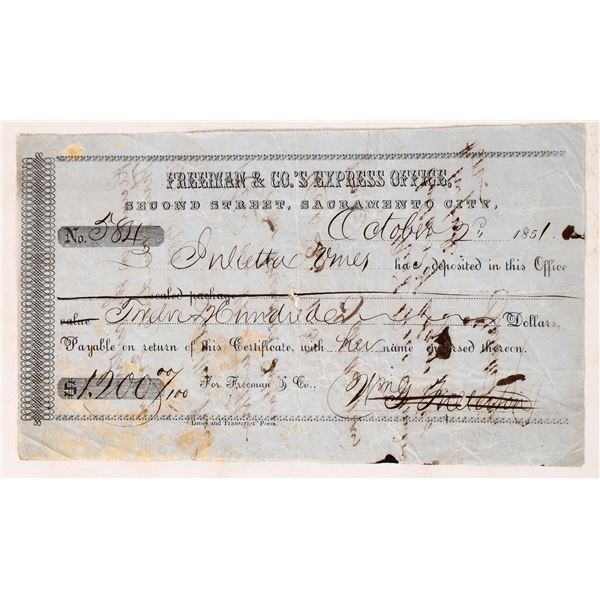 FREEMAN & CO.'S EXPRESS OFFICE,
SECOND STREET, SACRAMENTO CITY,
October 1851.
No. 584
Julietta has deposited in this Office
sealed package
value Twelve Hundred Dollars,
Payable on return of this Certificate, with her name endorsed thereon.
$1200 00/100 For Freeman & Co., Wm G Freeman
Times and Transcript Press.